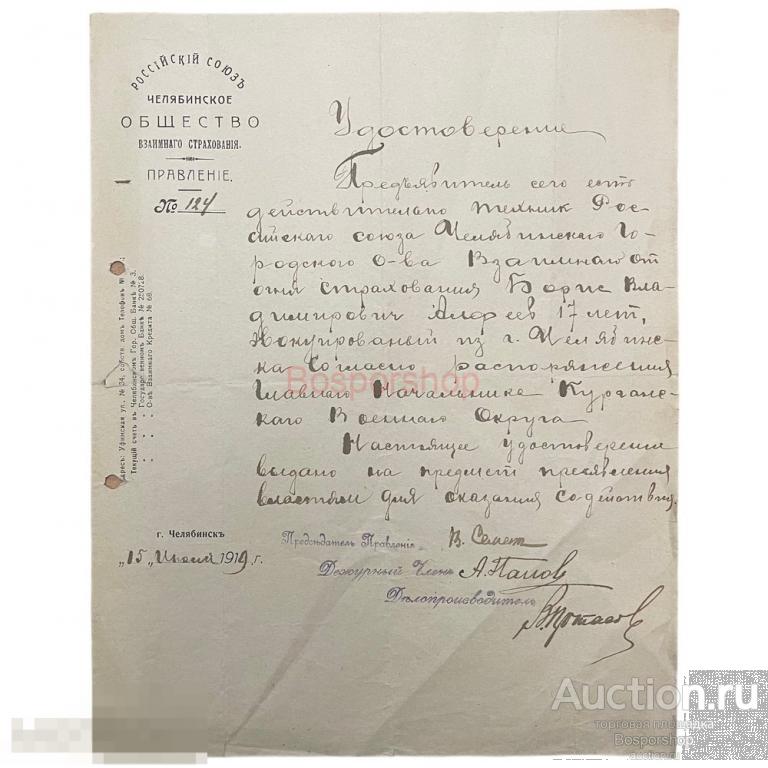 РОССІЙСКІЙ СОЮЗЪ
ЧЕЛЯБИНСКОЕ
ОБЩЕСТВО
ВЗАИМНАГО СТРАХОВАНІЯ.
ПРАВЛЕНІЕ.
№ 124
Адресъ: Уфимская ул., № 34, собств. домъ. Телефонъ №
Текущій счетъ въ Челябинскомъ Гор. Общ. Банкѣ № 3.
Государственномъ Банкѣ № 20728.
О-вѣ Взаимнаго Кредита № 68.
Удостоверение
Предъявитель сего есть
действительно техник Рос-
сийскаго союза Челябинскаго Го-
родского О-ва Взаимнаго от
огня страхования Борис Вла-
димирович Алфеев 17 лет,
эвокуированый из г. Челябин-
ска согласно распоряжения
Главнаго Начальника Курган-
скаго Военнаго Округа
Настоящее удостоверение
выдано на предмет пресявления
властям для оказания содействия.
г. Челябинскъ
„15„ Июля 1919 г.
Предсѣдатель Правленія В. Семет
Дежурный Членъ А. Попов
Дѣлопроизводитель
В. Потасов
Bosporshop
Auction.ru
торговая площадка
Bosporshop
auction.ru